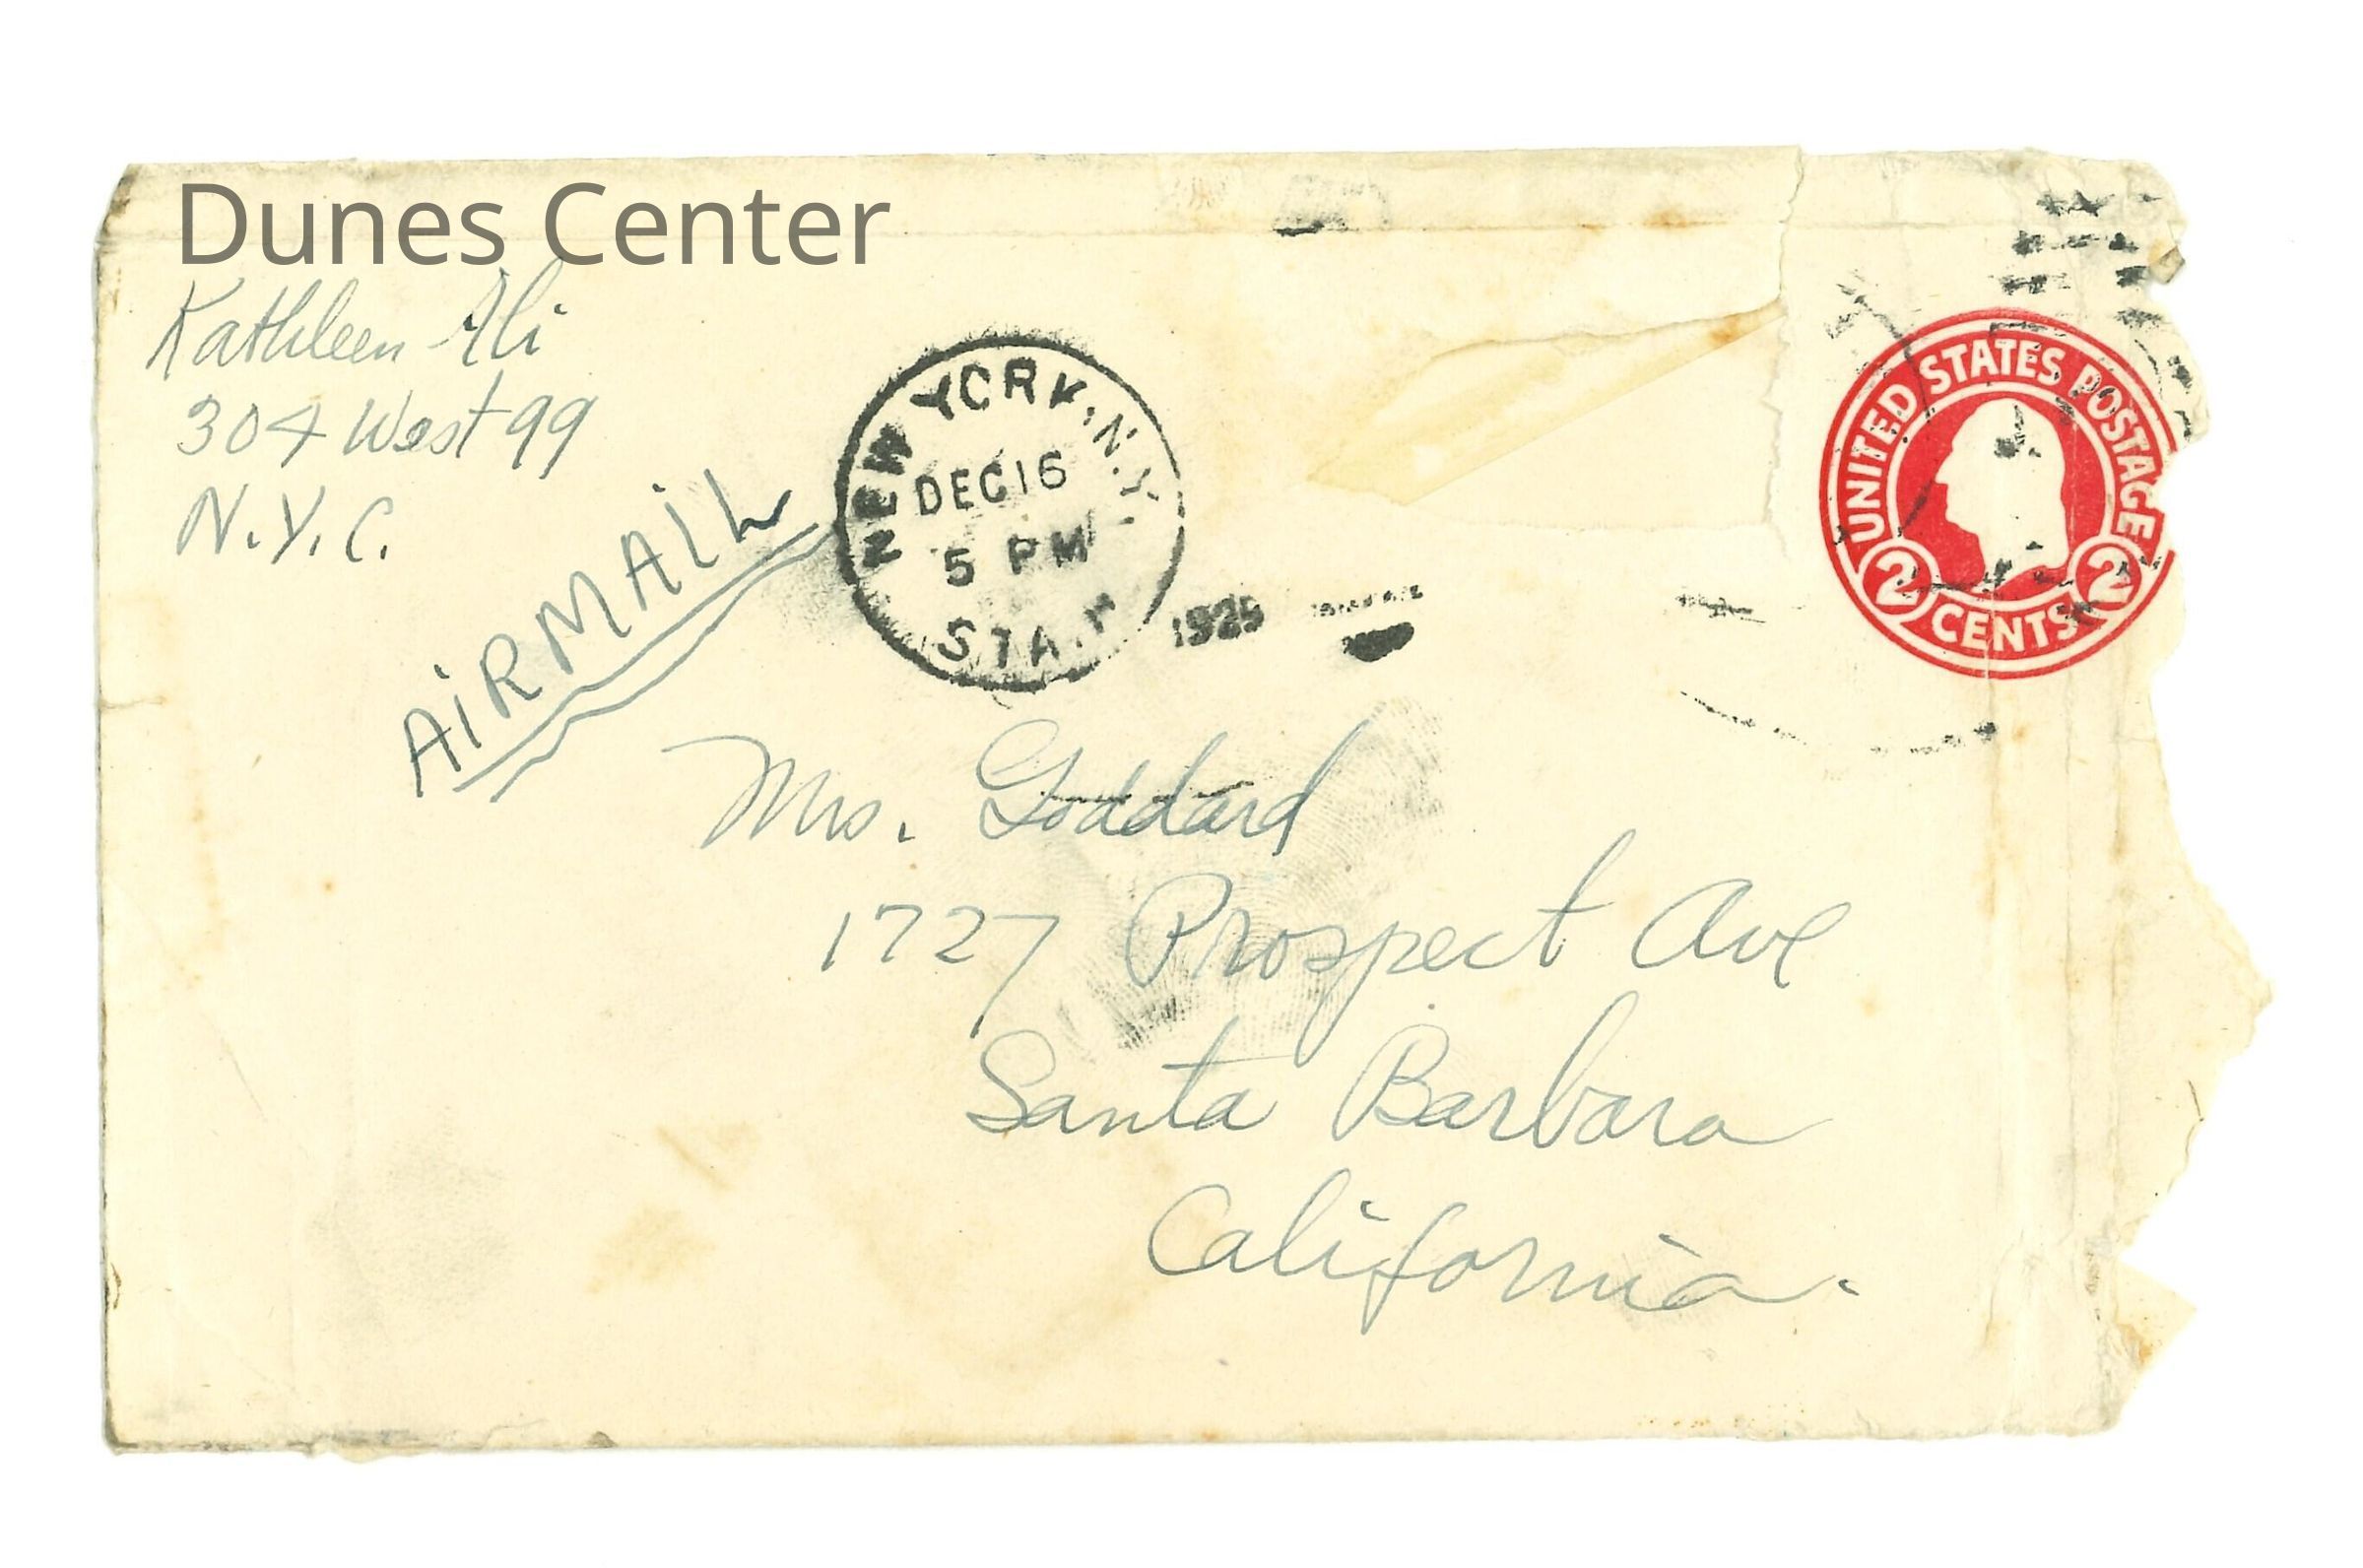 Dunes Center
Kathleen Ali
304 West 99
N.Y.C.
AiRMAiL
NEW YORK, N.Y.
DEC 16
5 PM
STA.
1925
UNITED STATES POSTAGE
2 CENTS 2
Mrs. Goddard
1727 Prospect Ave
Santa Barbara
California.